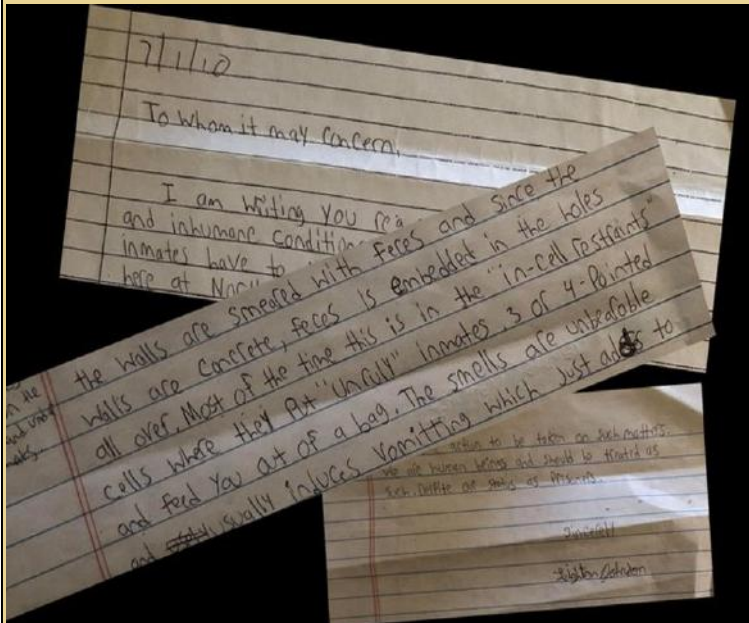 7/1/10
To whom it may concern,
I am writing you rega
and inhumane condition
inmates have to
here at
the walls are smeared with feces and since the
walls are concrete, feces is embedded in the holes
all over. Most of the time this is in the "in-cell restraints"
cells where they put "unruly" inmates 3 or 4-Pointed
and feed you out of a bag. The smells are unbearable
and usually induces vomitting which just adds to
in the
and
action to be taken on such matters.
We are human beings and should be treated as
such. Despite our status as Prisoners.
Johnson